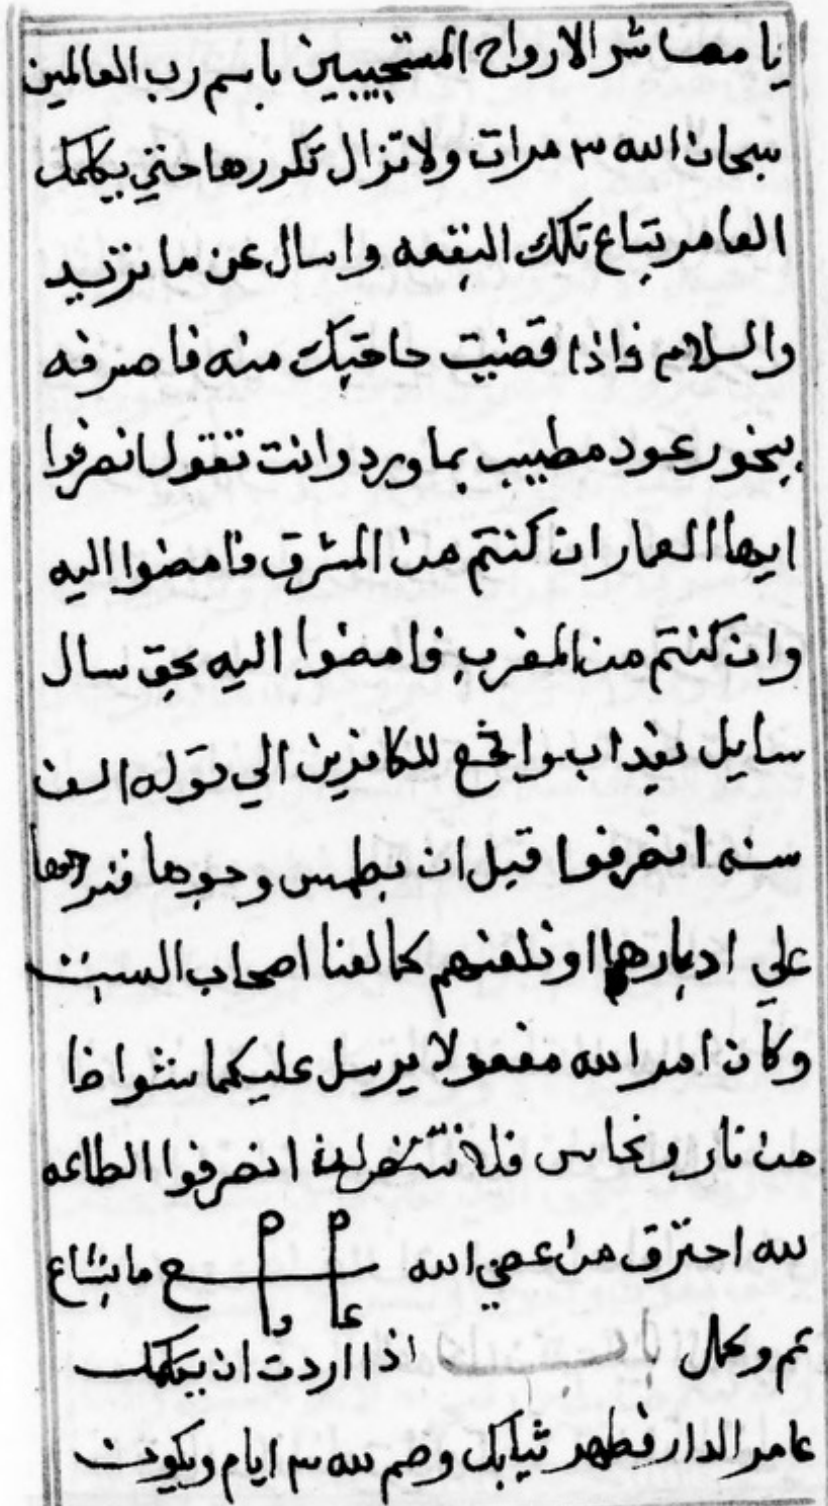 يا معاشر الارواح المستجيبين باسم رب العالمين
سبحان الله ٣ مرات ولا تزال تكررها حتي يكلمك
العامر بتاع تلك البقعه واسال عن ما تريد
والسلام فاذا قضيت حاجتك منه فاصرفه
ببخور عود مطيب بماورد وانت تقول انصرفوا
ايها العمار ان كنتم من المشرق فامضوا اليه
وان كنتم من المغرب فامضوا اليه بحق سال
سايل بعذاب واقع للكافرين الي قوله الف
سنه انصرفوا قبل ان نطمس وجوها فنردها
علي ادبارها او نلعنهم كما لعنا اصحاب السبت
وكان امر الله مفعولا يرسل عليكما شواظا
من نار ونحاس فلا تنتصران انصرفوا الطاعه
لله احترق من عصي الله ما يتباع
تم وكمل باب اذا اردت ان يكلمك
عامر الدار فطهر ثيابك وصم لله ٣ ايام ويكون